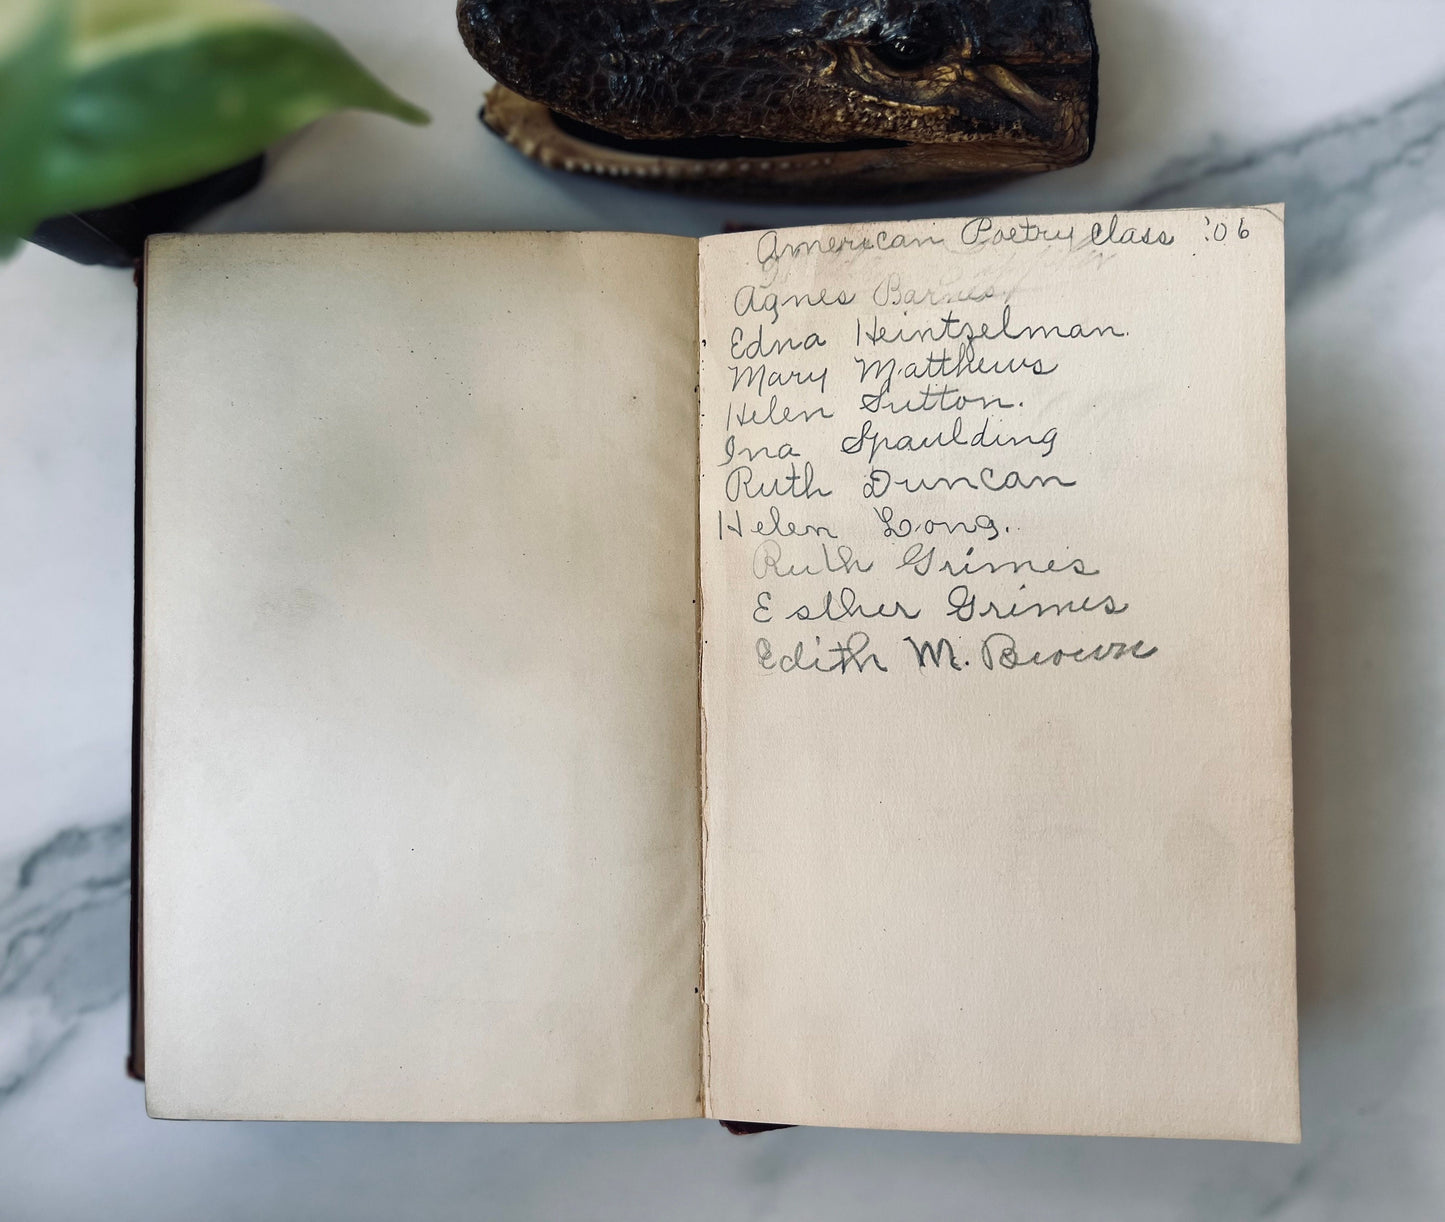 American Poetry class '06
Agnes Barnes
Edna Heintzelman.
Mary Matthews
Helen Sutton.
Ina Spaulding
Ruth Duncan
Helen Long.
Ruth Grimes
Esther Grimes
Edith M. Brown